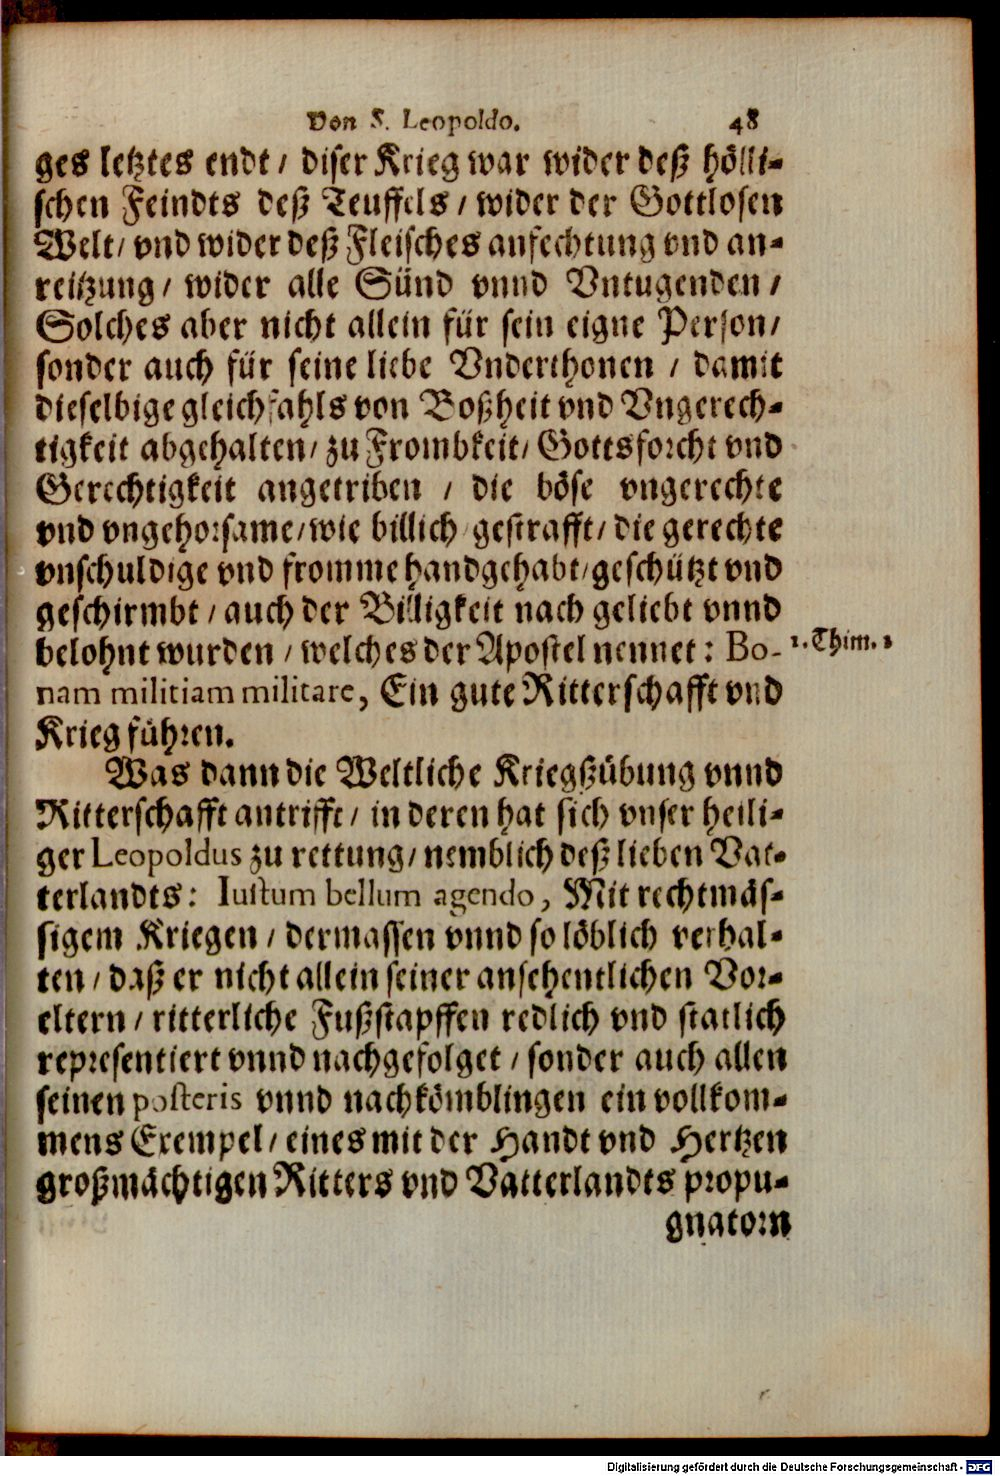 Von S. Leopoldo. 48
ges letztes endt / diser Krieg war wider deß hölli-
schen Feindts deß Teuffels / wider der Gottlosen
Welt / vnd wider deß Fleisches anfechtung vnd an-
reitzung / wider alle Sünd vnnd Vntugenden /
Solches aber nicht allein für sein eigne Person /
sonder auch für seine liebe Vnderthonen / damit
dieselbige gleichfahls von Boßheit vnd Vngerech-
tigkeit abgehalten / zu Frombkeit / Gottsforcht vnd
Gerechtigkeit angetriben / die böse vngerechte
vnd vngehorsame / wie billich gestrafft / die gerechte
vnschuldige vnd fromme handgehabt / geschützt vnd
geschirmbt / auch der Billigkeit nach geliebt vnnd
belohnt wurden / welches der Apostel nennet : Bo-
1. Thim. 1
nam militiam militare, Ein gute Ritterschafft vnd
Krieg führen.
Was dann die Weltliche Kriegßübung vnnd
Ritterschafft antrifft / in deren hat sich vnser heili-
ger Leopoldus zu rettung / nemblich deß lieben Vat-
terlandts : Iustum bellum agendo, Mit rechtmäs-
sigem Kriegen / dermassen vnnd so löblich verhal-
ten / daß er nicht allein seiner ansehentlichen Vor-
eltern / ritterliche Fußstapffen redlich vnd statlich
representiert vnnd nachgefolget / sonder auch allen
seinen posteris vnnd nachkömblingen ein vollkom-
mens Exempel / eines mit der Handt vnd Hertzen
großmächtigen Ritters vnd Vatterlandts propu-
gnatorn
Digitalisierung gefördert durch die Deutsche Forschungsgemeinschaft - DFG